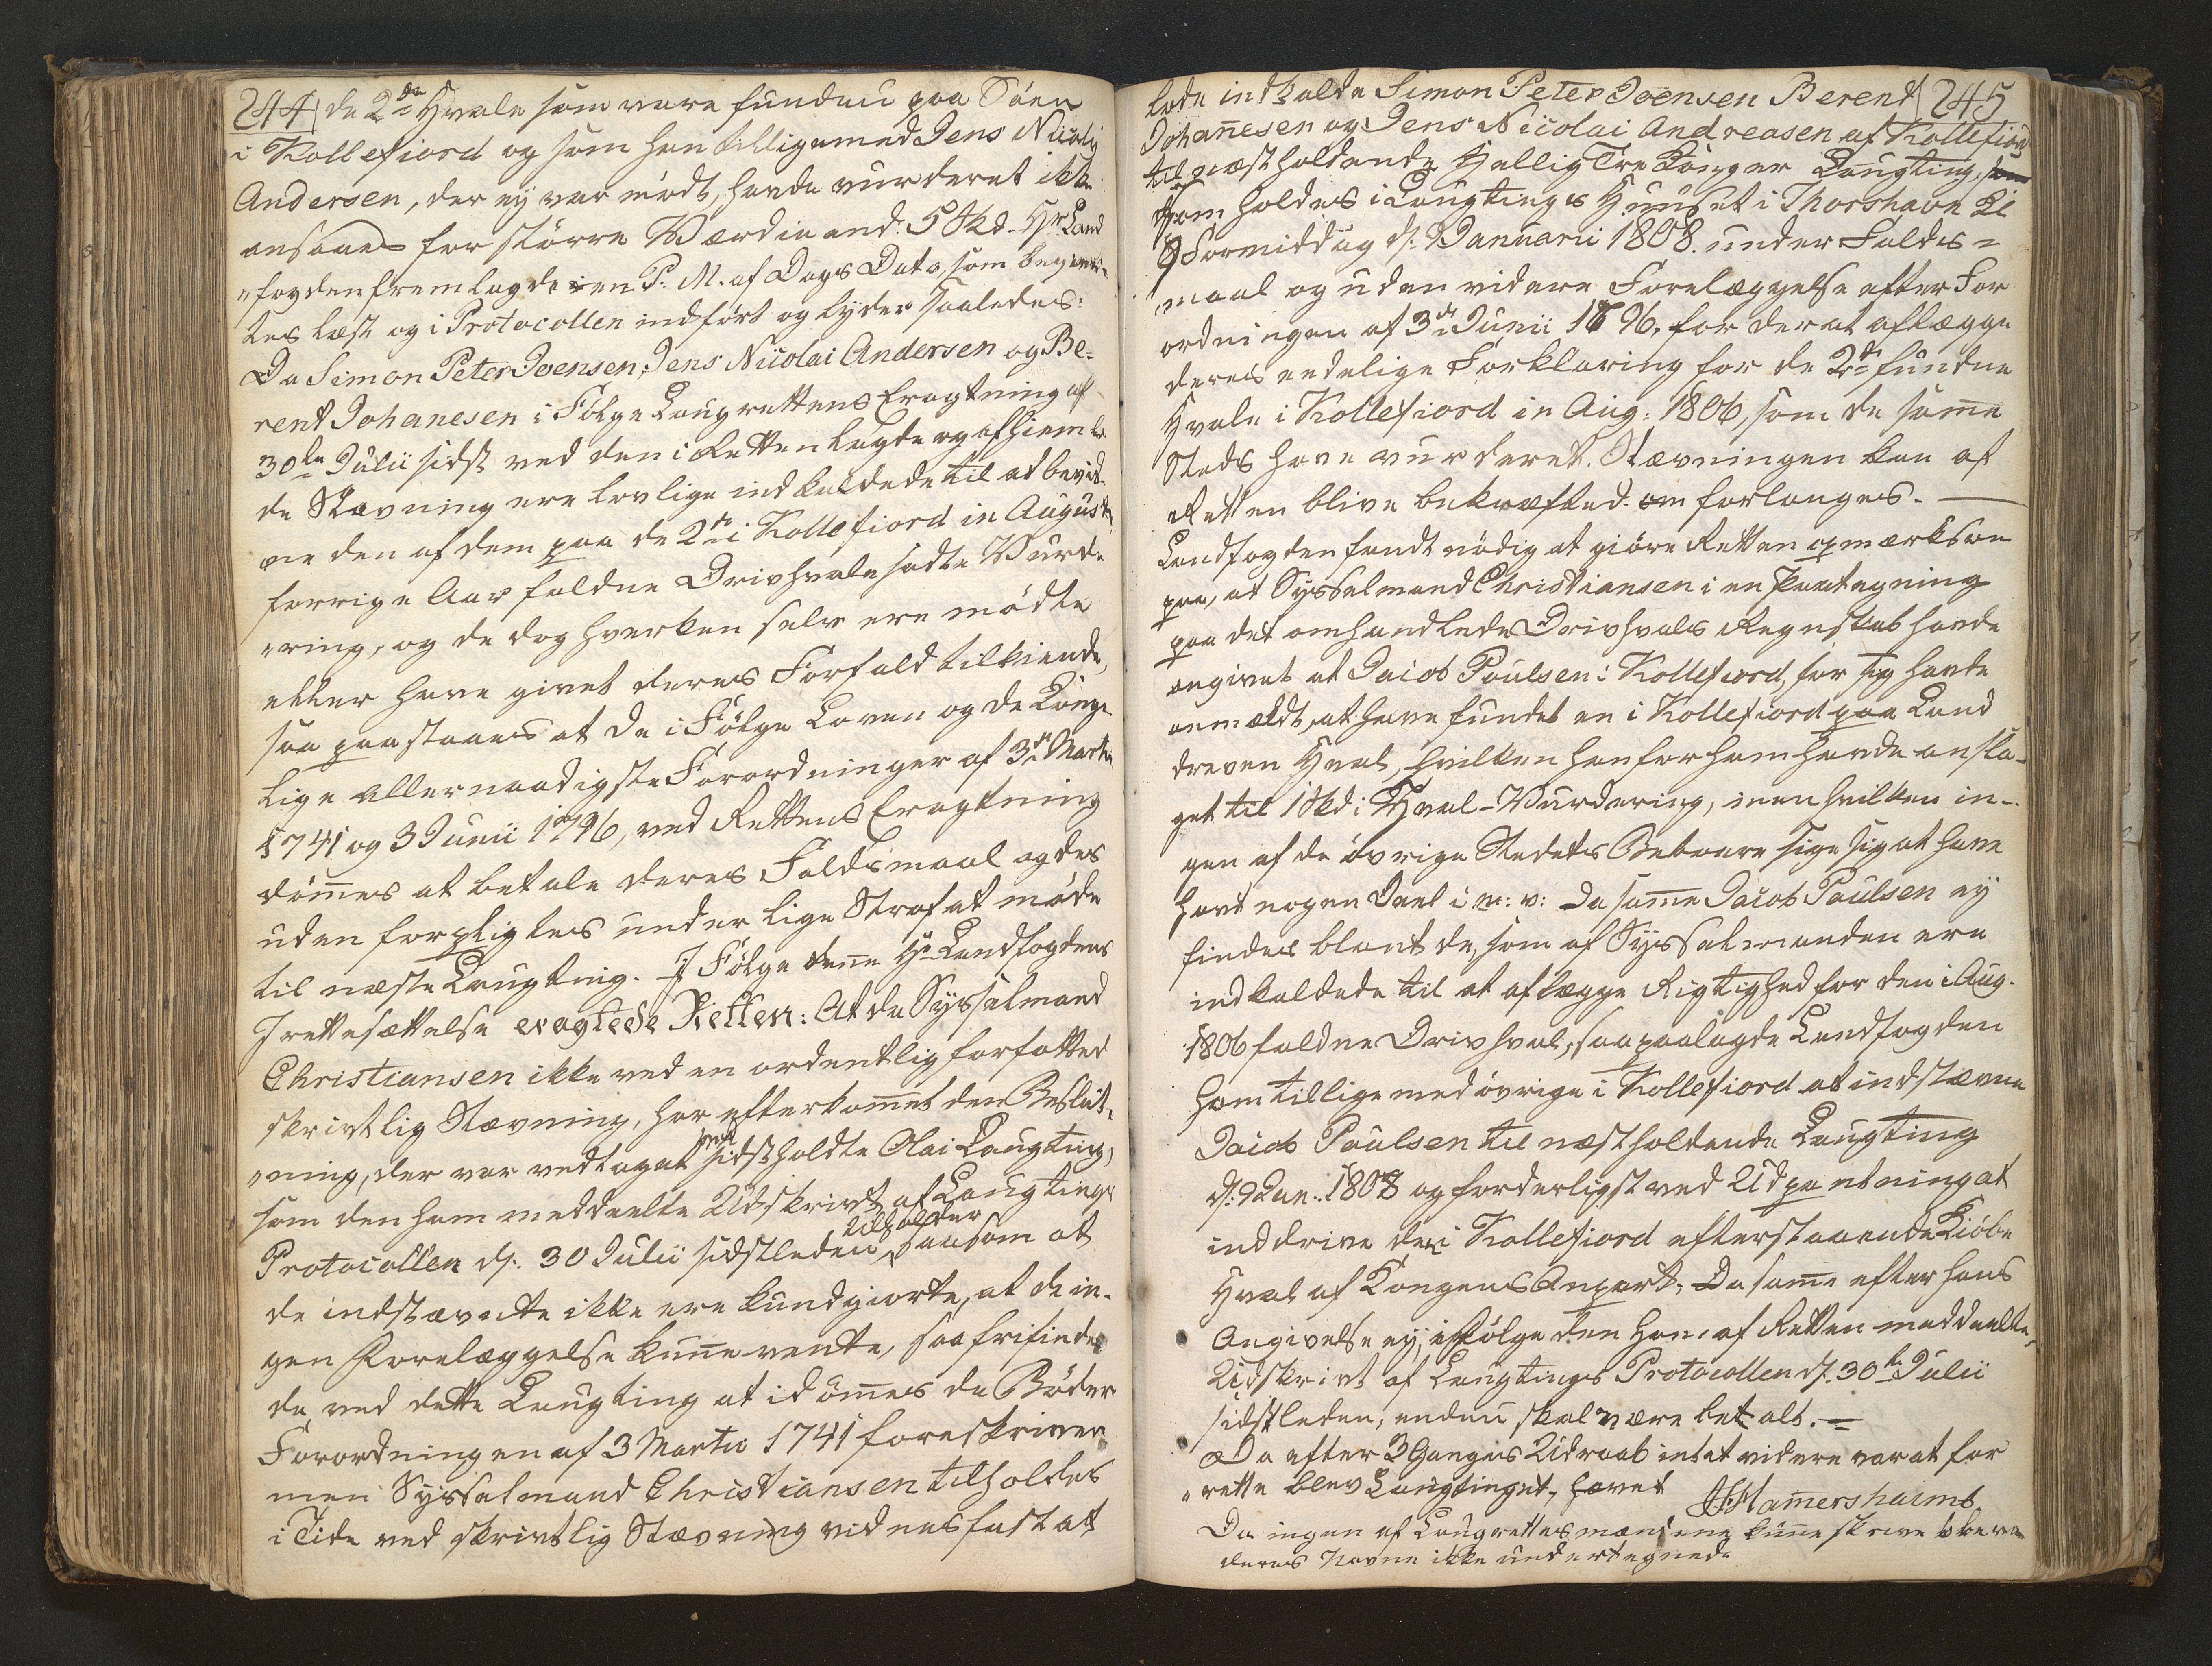 244 de 2de Hvale som vare funden paa Söen
i Kollefiord og som han tilligemed Jens Nicolaj
Andersen, der ej var mödt, havde vurderet ikke
ansaaes for större Værdie end: 5 Skd. Hr Land
"fogden fremlagde en P. M. af Dags Dato som begier-
tes læst og i Protocollen indfört og lyder saaledes:
Da Simon Peter Joensen, Jens Nicolai Andersen og Be-
rent Johanesen i Fölge Laugrettens Eragtning af
30te Julii sidst ved den i Retten lagte og afhiemle
de Stævning ere lovlige indkaldede til at bevid-
ne den af dem paa de 2de i Kollefiord in Augusti
forrige Aar faldne Drivhvale sadte Vurde
"ring, og de dog hverken selv ere mödte
eller have givet deres Forfald tilkiende,
saa paastaaes at de i Fölge Loven og de Konge
lige allernaadigste Forordninger af 3de Martii
1741 og 3 Junii 1796, ved Rettens Eragtning
dömmes at betale deres Faldsmaal og des
uden forpligtes under lige Straf at möde
til næste Laugting. I Fölge denne Hr Landfogdens
Irettesættelse eragtede Retten: At da Sysselmand
Christiansen ikke ved en ordentlig forfatted
skrivtlig Stævning, har efterkommet den Beslut-
"ning, der var vedtaget ved sidstholdte Olai Laugting,
som den ham meddeelte Udskrivt af Laugtings
Protocollen d. 30 Julii sidstleden udholder, saasom at
de indstævnte ikke ere kundgiorte, at de in-
gen Forelæggelse kunne vente, saa frifindes
de, ved dette Laugting at idömmes de Böder
Forordningen af 3 Martii 1741 foreskriver
men Sysselmand Christiansen tilholdes
i Tide ved skrivtlig Stævning vidnesfast at
245
lade indkalde Simon Peter Joensen Berent
Johannesen og Jens Nicolai Andreasen af Kollefiord
til næstholdende Hellig Tre Konger Laugting,
som holdes i Laugtings Huuset i Thorshavn Kl
9 Formiddag d. 9 Januarii 1808. under Falds-
maal og uden videre Forelæggelse efter For
ordningen af 3de Junii 1796. for der at aflægge
deres endelige Forklaring for de 2de fundne
Hvale i Kollefiord in Aug: 1806, som de samme
Steds have vurderet. Stævningen kan af
Retten blive bekræfted om forlanges. —
Landfogden fandt nödig at giöre Retten opmærksom
paa, at Sysselmand Christiansen i en Paategning
paa det omhandlede Drivhvals Regnskab havde
angivet at Jacob Poulsen i Kollefiord, for sig havde
anmældt, at have fundet en i Kollefiord paa Land
dreven Hval, hvilken han for ham havde ansla-
get til 1 Skd: Hval-Vurdering, men hvilken in-
gen af de övrige Stedets Beboere sige sig at have
havt nogen Deel i m: v: Da samme Jacob Poulsen ej
findes blant de, som af Sysselmanden ere
indkaldede til at aflægge Rigtighed for den i Aug.
1806 faldne Drivhval, saa paalagde Landfogden
ham tillige med övrige i Kollefiord at indstævne
Jacob Poulsen til næstholdende Laugting
d. 9 Jan. 1808 og forderligst ved Udpantning at
inddrive den i Kollefiord efterstaaende Kiöbe
Hval af Kongens Anpart, Da samme efter hans
Angivelse ej, ifölge den ham af Retten meddeelte
Udskrivt af Laugtings Protocollen d. 30te Julii
sidstleden, endnu skal være betalt. —
Da efter 3 Ganges Udraab intet videre var at for
"rette blev Laugtinget, hævet JHammershaimb
Da ingen af Laugrettesmændene kunne skrive bleve
deres Navne ikke undertegnede